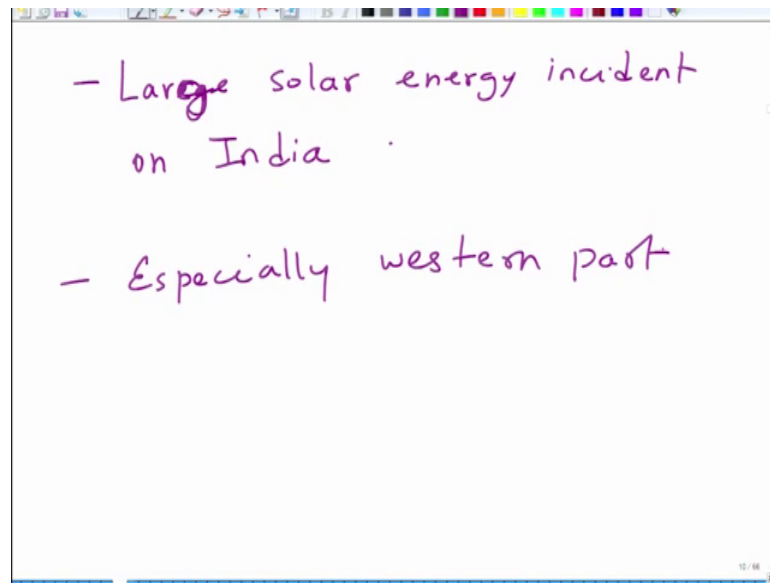 - Large solar energy incident
on India
- Especially western part
10/66